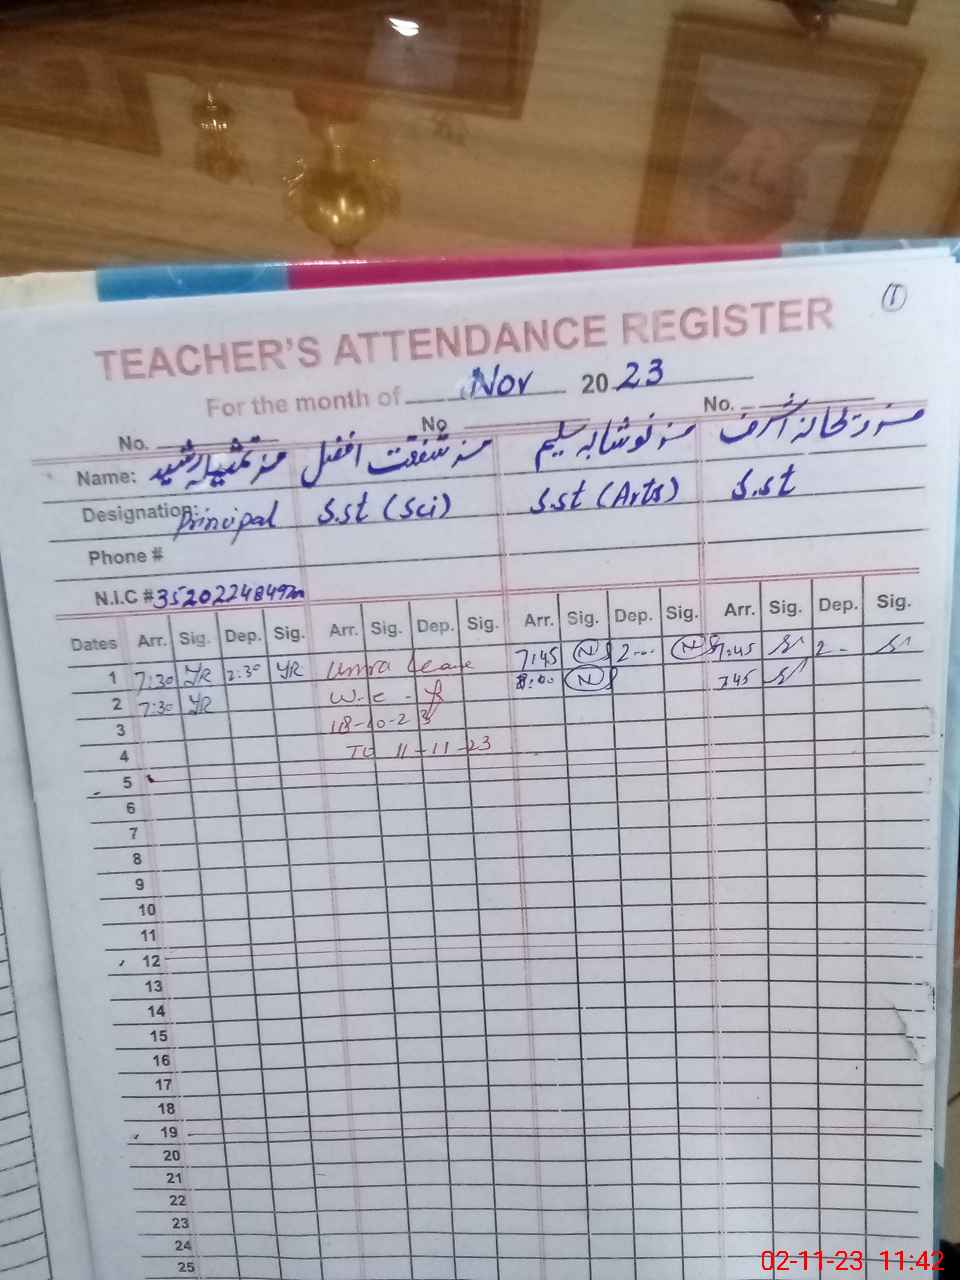 ①
TEACHER'S ATTENDANCE REGISTER
For the month of Nov 2023
No. No No.
Name: مسز تمثیلہ رشید مسز شفقت افضل مسز نوشابہ سلیم مسز ریحانہ اشرف
Designation: Principal S.st (Sci) S.st (Arts) S.st
Phone #
N.I.C #
Dates Arr. Sig. Dep. Sig. Arr. Sig. Dep. Sig. Arr. Sig. Dep. Sig. Arr. Sig. Dep. Sig.
1 7:30 YR 2:30 YR Umra leave 7:45 N 2-- N 7:45 2-
2 7:30 YR w.e.f 8:00 N 745
3 18-10-23
4 To 11-11-23
5
6
7
8
9
10
11
12
13
14
15
16
17
18
19
20
21
22
23
24
25
02-11-23 11:42